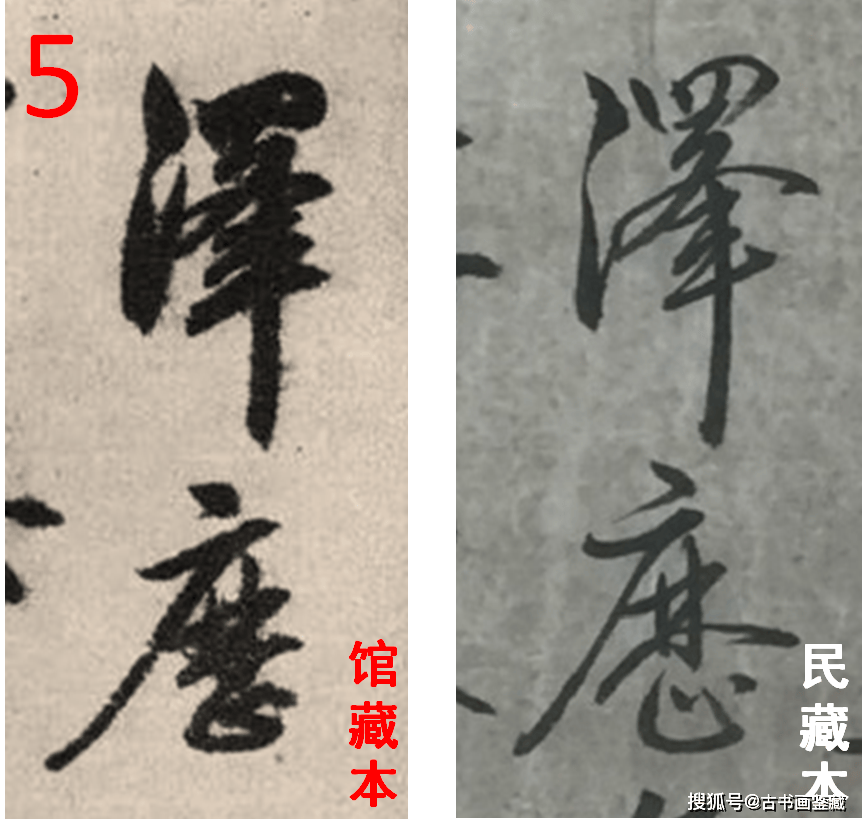 5
澤
馆藏本
澤
民藏本
搜狐号@古书画鉴藏